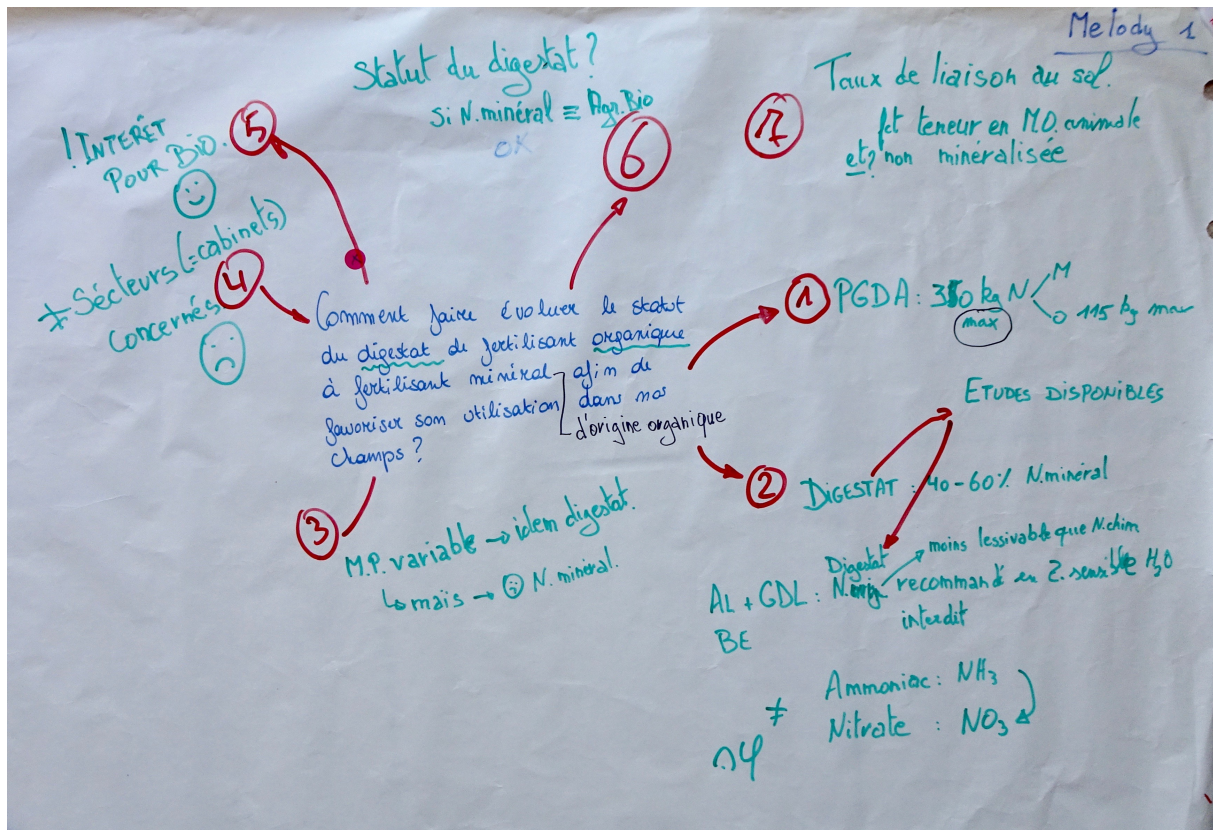 Melody 1
Statut du digestat ?
si N.minéral ≡ Agr.Bio
OK
6
7
Taux de liaison au sol.
fct teneur en M.O. animale
et? non minéralisée
5
! INTERÊT
POUR BIO.
4
≠ Sécteurs (=cabinets)
concernés
Comment faire évoluer le statut
du digestat de fertilisant organique
à fertilisant minéral afin de
favoriser son utilisation dans nos
champs ?
d'origine organique
1
PGDA : 350 kg N
max
M
O 115 kg max
ETUDES DISPONIBLES
2
DIGESTAT : 40-60% N.minéral
3
M.P. variable → idem digestat.
↳ mais → N. minéral.
Digestat
moins lessivable que N.chim
AL + GDL : recommandé en Z. sensible H₂O
BE
interdit
≠
Ammoniac : NH₃
Nitrate : NO₃